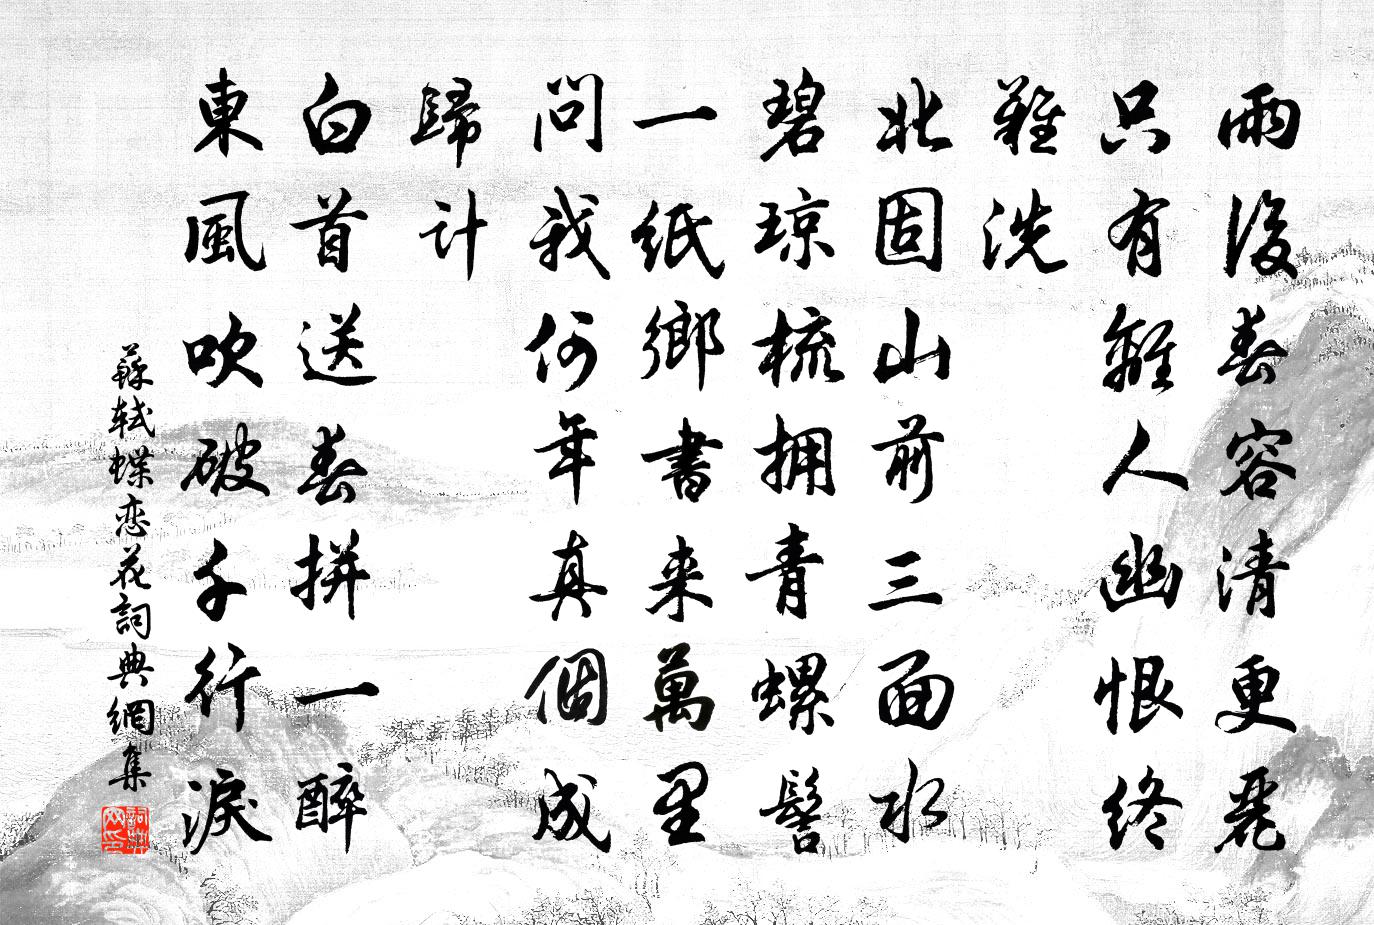 雨後春容清更麗
只有離人幽恨終
難洗
北固山前三面水
碧瓊梳拥青螺髻
一紙鄉書来萬里
問我何年真個成
歸计
白首送春拼一醉
東風吹破千行淚
蘇轼蝶恋花詞典網集